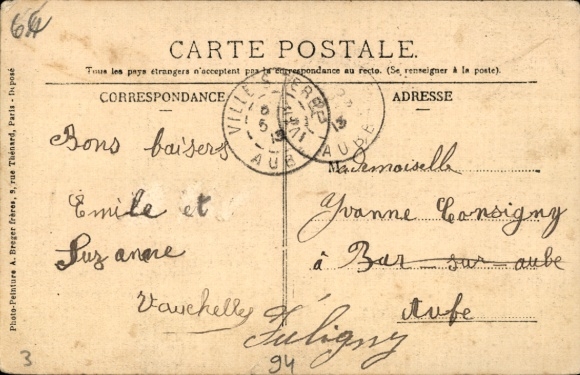 64
CARTE POSTALE.
Tous les pays étrangers n'acceptent pas la correspondance au recto. (Se renseigner à la poste).
CORRESPONDANCE
ADRESSE
Bons baisers
Emile et
Suzanne
Vauchelles
Mademoiselle
Yvonne Consigny
à Bar sur aube
Aube
Fuligny
3
94
VILLE
AUBE
AUBE
Photo-Peinture A. Breger frères, 9, rue Thénard, Paris - Déposé